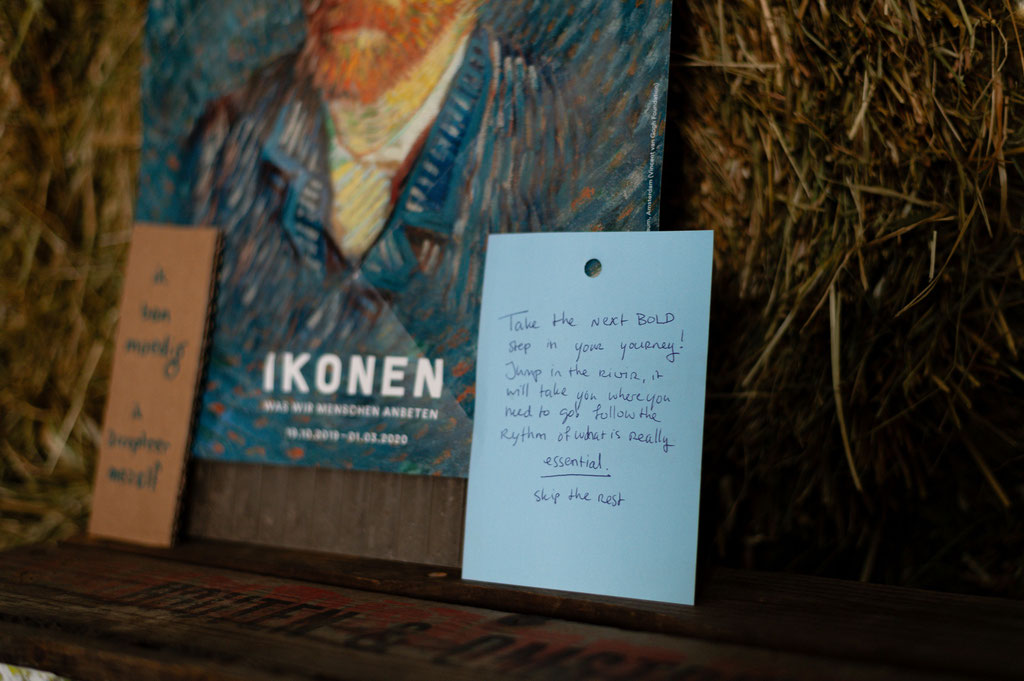 ik
ben
moedig
ik
inspireer
mezelf
IKONEN
WAS WIR MENSCHEN ANBETEN
19.10.2019–01.03.2020
Amsterdam (Vincent van Gogh Foundation)
Take the next BOLD
step in your yourney!
Jump in the RIVIR, it
will take you where you
need to go. follow the
Rythm of what is Really
essential.
skip the rest